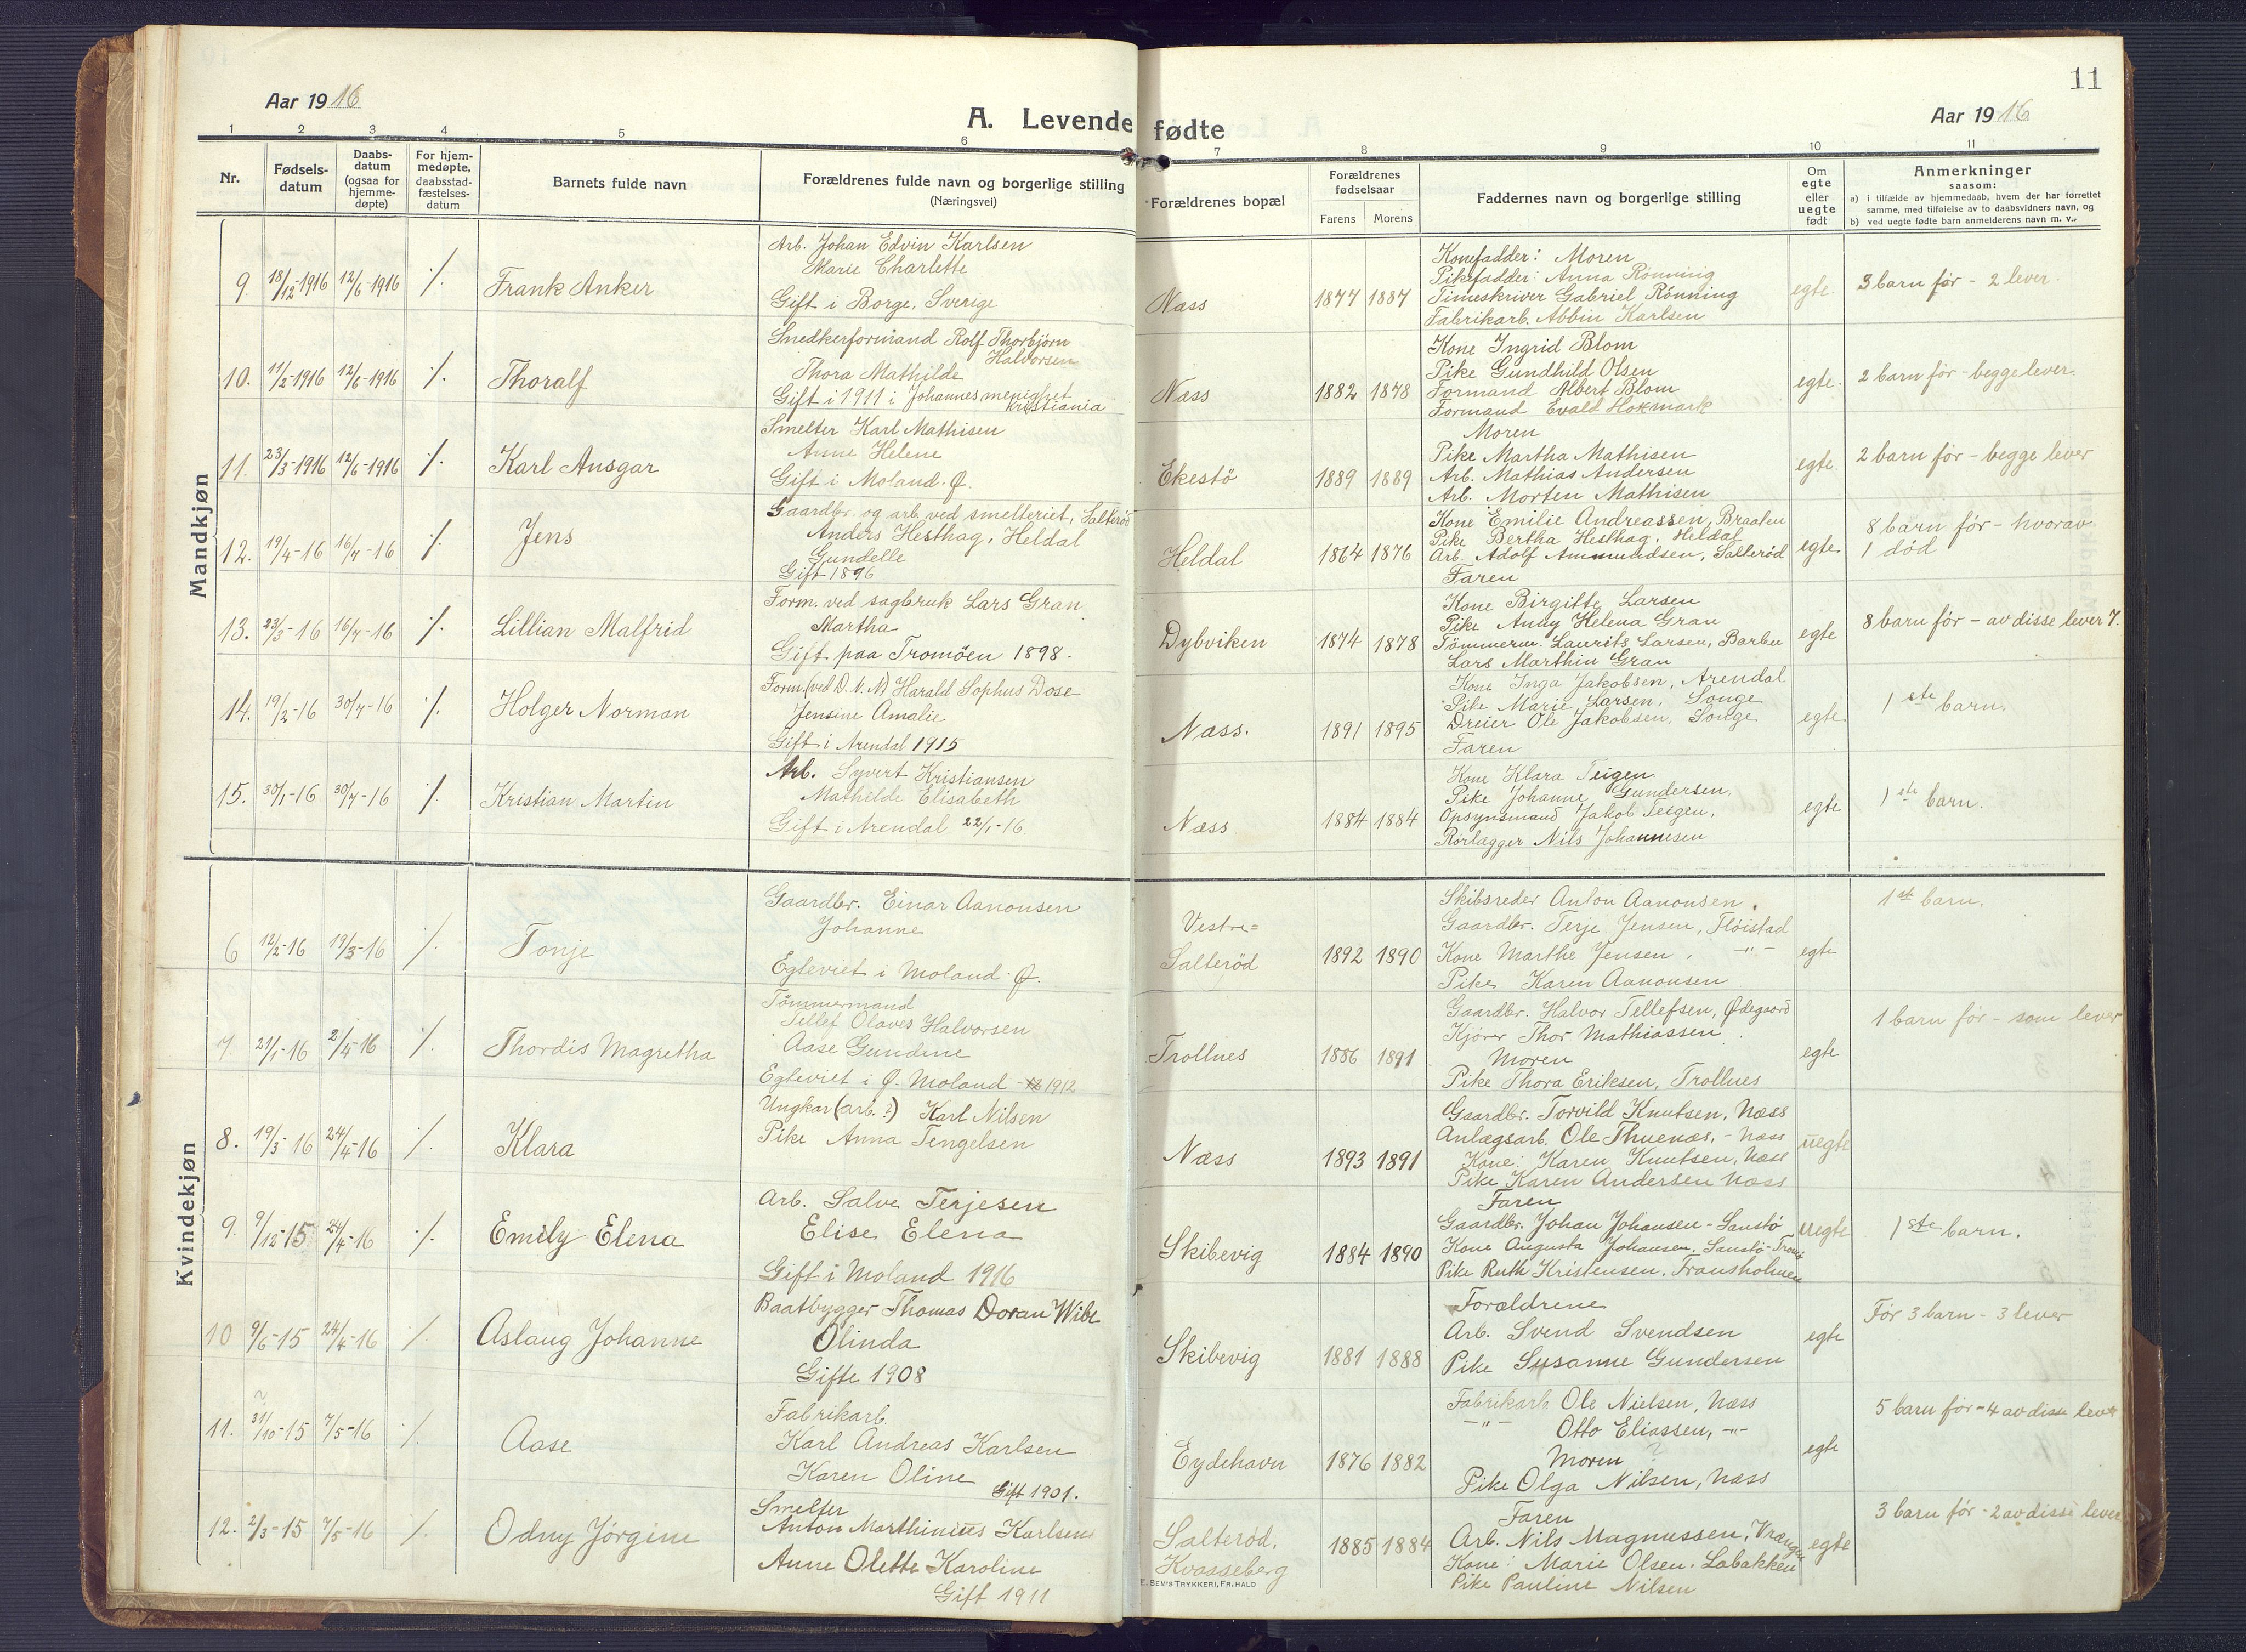 11
Aar 1916
A. Levende fødte
Aar 1916
1 2 3 4 5 6 7 8 9 10 11
Nr.
Fødsels-
datum
Daabs-
datum
(ogsaa for
hjemme-
døpte)
For hjem-
medøpte,
daabsstad-
fæstelses-
datum
Barnets fulde navn
Forældrenes fulde navn og borgerlige stilling
(Næringsvei)
Forældrenes bopæl
Forældrenes
fødselsaar
Farens Morens
Faddernes navn og borgerlige stilling
Om
egte
eller
uegte
født
Anmerkninger
saasom:
a) i tilfælde av hjemmedaab, hvem der har forrettet
samme, med tilføielse av to daabsvidners navn, og
b) ved uegte fødte barn anmelderens navn m. v.
Mandkjøn
9. 18/12-1916 12/6-1916 ·/. Frank Anker
Arb. Johan Edvin Karlsen
Marie Charlette
Gift i Borge, Sverige
Næss 1877 1887
Konefadder: Moren
Pikefadder: Anna Rönning
Timeskriver Gabriel Rönning
Fabrikarb. Abbin Karlsen
egte.
3 barn før - 2 lever.
10. 11/2-1916 12/6-1916 ·/. Thoralf
Snedkerformand Rolf Thorbjörn
Halvorsen
Thora Mathilde
Gift i 1911 i Johannes menighet
Kristiania
Næss 1882 1878
Kone Ingrid Blom
Pike Gundhild Olsen
Formand Albert Blom
Formand Evald Hokmark
egte.
2 barn før - begge lever.
11. 23/3-1916 12/6-1916 ·/. Karl Ansgar
Smelter Karl Mathisen
Anne Helene
Gift i Moland. Ø.
Ekestö 1889 1889
Moren
Pike Martha Mathisen
Arb. Mathias Andersen
Arb. Morten Mathisen
egte.
2 barn før - begge lever
12. 19/4-16 16/7-16 ·/. Jens
Gaardbr. og arb. ved smelteriet, Salteröd
Anders Hesthag, Heldal
Gundelle
Gift 1896
Heldal 1864 1876
Kone Emilie Andreassen, Braaten
Pike Bertha Hesthag, Heldal
Arb. Adolf Ammundsen, Salteröd
Faren
egte.
8 barn før - hvorav
1 död
13. 23/3-16 16/7-16 ·/. Lillian Malfrid
Form. ved sagbruk Lars Gran
Martha
Gift paa Tromöen 1898.
Dybviken 1874 1878
Kone Birgitte Larsen
Pike Anny Helena Gran
Tömmerm. Laurits Larsen, Barbu
Lars Marthin Gran
egte
8 barn før - av disse lever 7.
14. 19/2-16 30/7-16 ·/. Holger Norman
Form. (ved D. N. N) Harald Sophus Dose
Jensine Amalie
Gift i Arendal 1915
Næss. 1891 1895
Kone Inga Jakobsen, Arendal
Pike Marie Larsen, Songe
Dreier Ole Jakobsen, Songe
Faren
egte
1ste barn.
15. 30/1-16 30/7-16 ·/. Kristian Martin
Arb. Syvert Kristiansen
Mathilde Elisabeth
Gift i Arendal 22/1-16.
Næss 1884 1884
Kone Klara Teigen
Pike Johanne Gundersen
Opsynsmand Jakob Teigen,
Rörlægger Nils Johannesen
egte
1ste barn.
Kvindekjøn
6 12/2-16 19/3-16 ·/. Tonje
Gaardbr. Einar Aanonsen
Johanne
Egteviet i Moland. Ø.
Vestre=
Salteröd 1892 1890
Skibsreder Anton Aanonsen
Gaardbr. Terje Jensen, Flöistad
Kone Marthe Jensen, -"-
Pike Karen Aanonsen
egte
1st barn.
7 21/1-16 2/4-16 ·/. Thordis Magretha
Tömmermand
Tellef Olaves Halvorsen
Aase Gundine
Egteviet i Ø. Moland - 1912
Trollnes 1886 1891
Gaardbr. Halvor Tellefsen, Ødegaard
Kjører Thor Mathiassen
Moren
Pike Thora Eriksen, Trollnes
egte
1 barn før - som lever
8. 19/3-16 24/4-16 ·/. Klara
Ungkar (arb.?) Karl Nilsen
Pike Anna Tengelsen
Næss 1893 1891
Gaardbr. Torvild Knutsen, Næss
Anlægsarb. Ole Thuenæs, - Næss
Kone: Karen Knutsen, Næss
Pike Karen Andersen Næss
uegte
9. 9/12-15 24/4-16 ·/. Emily Elena
Arb. Salve Terjesen
Elise Elena
Gift i Moland 1916
Skibevig 1884 1890
Faren
Gaardbr. Johan Johansen - Sanstö
Kone Augusta Johansen, Sanstö - Tromö
Pike Ruth Kristensen, Fransholmen
uegte
1ste barn.
10 9/6-15 24/4-16 ·/. Aslaug Johanne
Baatbygger Thomas Doran Wibe
Olinda
Gifte 1908
Skibevig 1881 1888
Forældrene
Arb. Svend Svendsen
Pike Susanne Gundersen
egte
Før 3 barn - 3 lever
11. ? 31/10-15 7/5-16 ·/. Aase
Fabrikarb.
Karl Andreas Karlsen
Karen Oline
Gift 1901.
Eydehavn 1876 1882
Fabrikarb. Ole Nielsen, Næss
-"- Otto Eliassen, -"-
Moren ?
Pike Olga Nilsen, Næss
egte
5 barn før - 4 av disse lever
12. 2/3-15 7/5-16 ·/. Odny Jörgine
Smelter
Anton Marthinius Karlsen
Anne Olette Karoline
Gift 1911
Salteröd,
Kvasseberg 1885 1884
Faren
Arb. Nils Magnussen, Vrængen
Kone: Marie Olsen, Labakken
Pike Pauline Nilsen
egte
3 barn før - 2 av disse lever
E. SEM'S TRYKKERI, FR.HALD